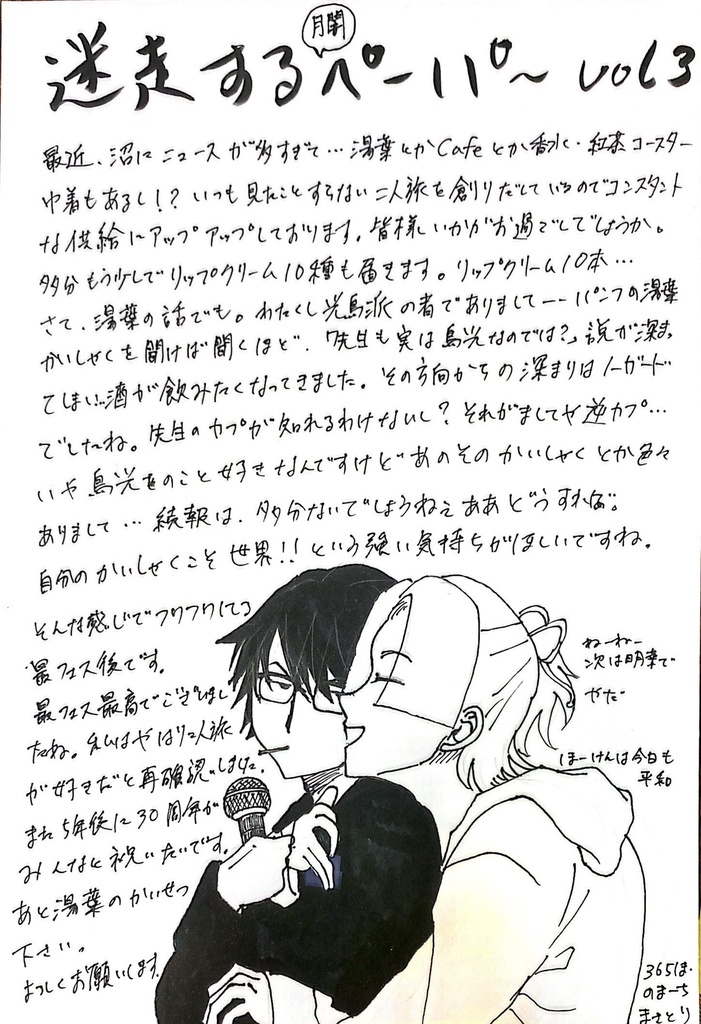 月闇
迷走するペーパ～ vol3
最近、沼にニュースが多すぎて…湯葉とかCafeとか香水・紅茶コースター
巾着もあるし!?いつも見たことすらない二人旅を創りだしているのでコンスタント
な供給にアップアップしております。皆様いかがお過ごしでしょうか。
多分もう少しでリップクリーム10種も届きます。リップクリーム10本…
さて、湯葉の話でも。わたくし光鳥派の者でありまして――パンフの湯葉
かいしゃくを聞けば聞くほど、「先生も実は鳥光なのでは?」説が深まっ
てしまい酒が飲みたくなってきました。その方向からの深まりはノーガード
でしたね。先生のカプが知れるわけないし?それがましてや逆カプ…
いや鳥光ものこと好きなんですけどあのそのかいしゃくとか色々
ありまして…続報は、多分ないでしょうねえああどうすれば。
自分のかいしゃくこそ世界!!という強い気持ちがほしいですね。
そんな感じでフワフワしてる
最フェス後です。
最フェス最高でございまし
たね。私はやはり二人旅
が好きだと再確認しました。
また5年後に30周年が
みんなと祝いたいです。
あと湯葉のかいせつ
下さい。
よろしくお願いします
ねーねー
次は明葉で
やだ
ほーけんは今日も
平和
365は・
のまーち
まさとり